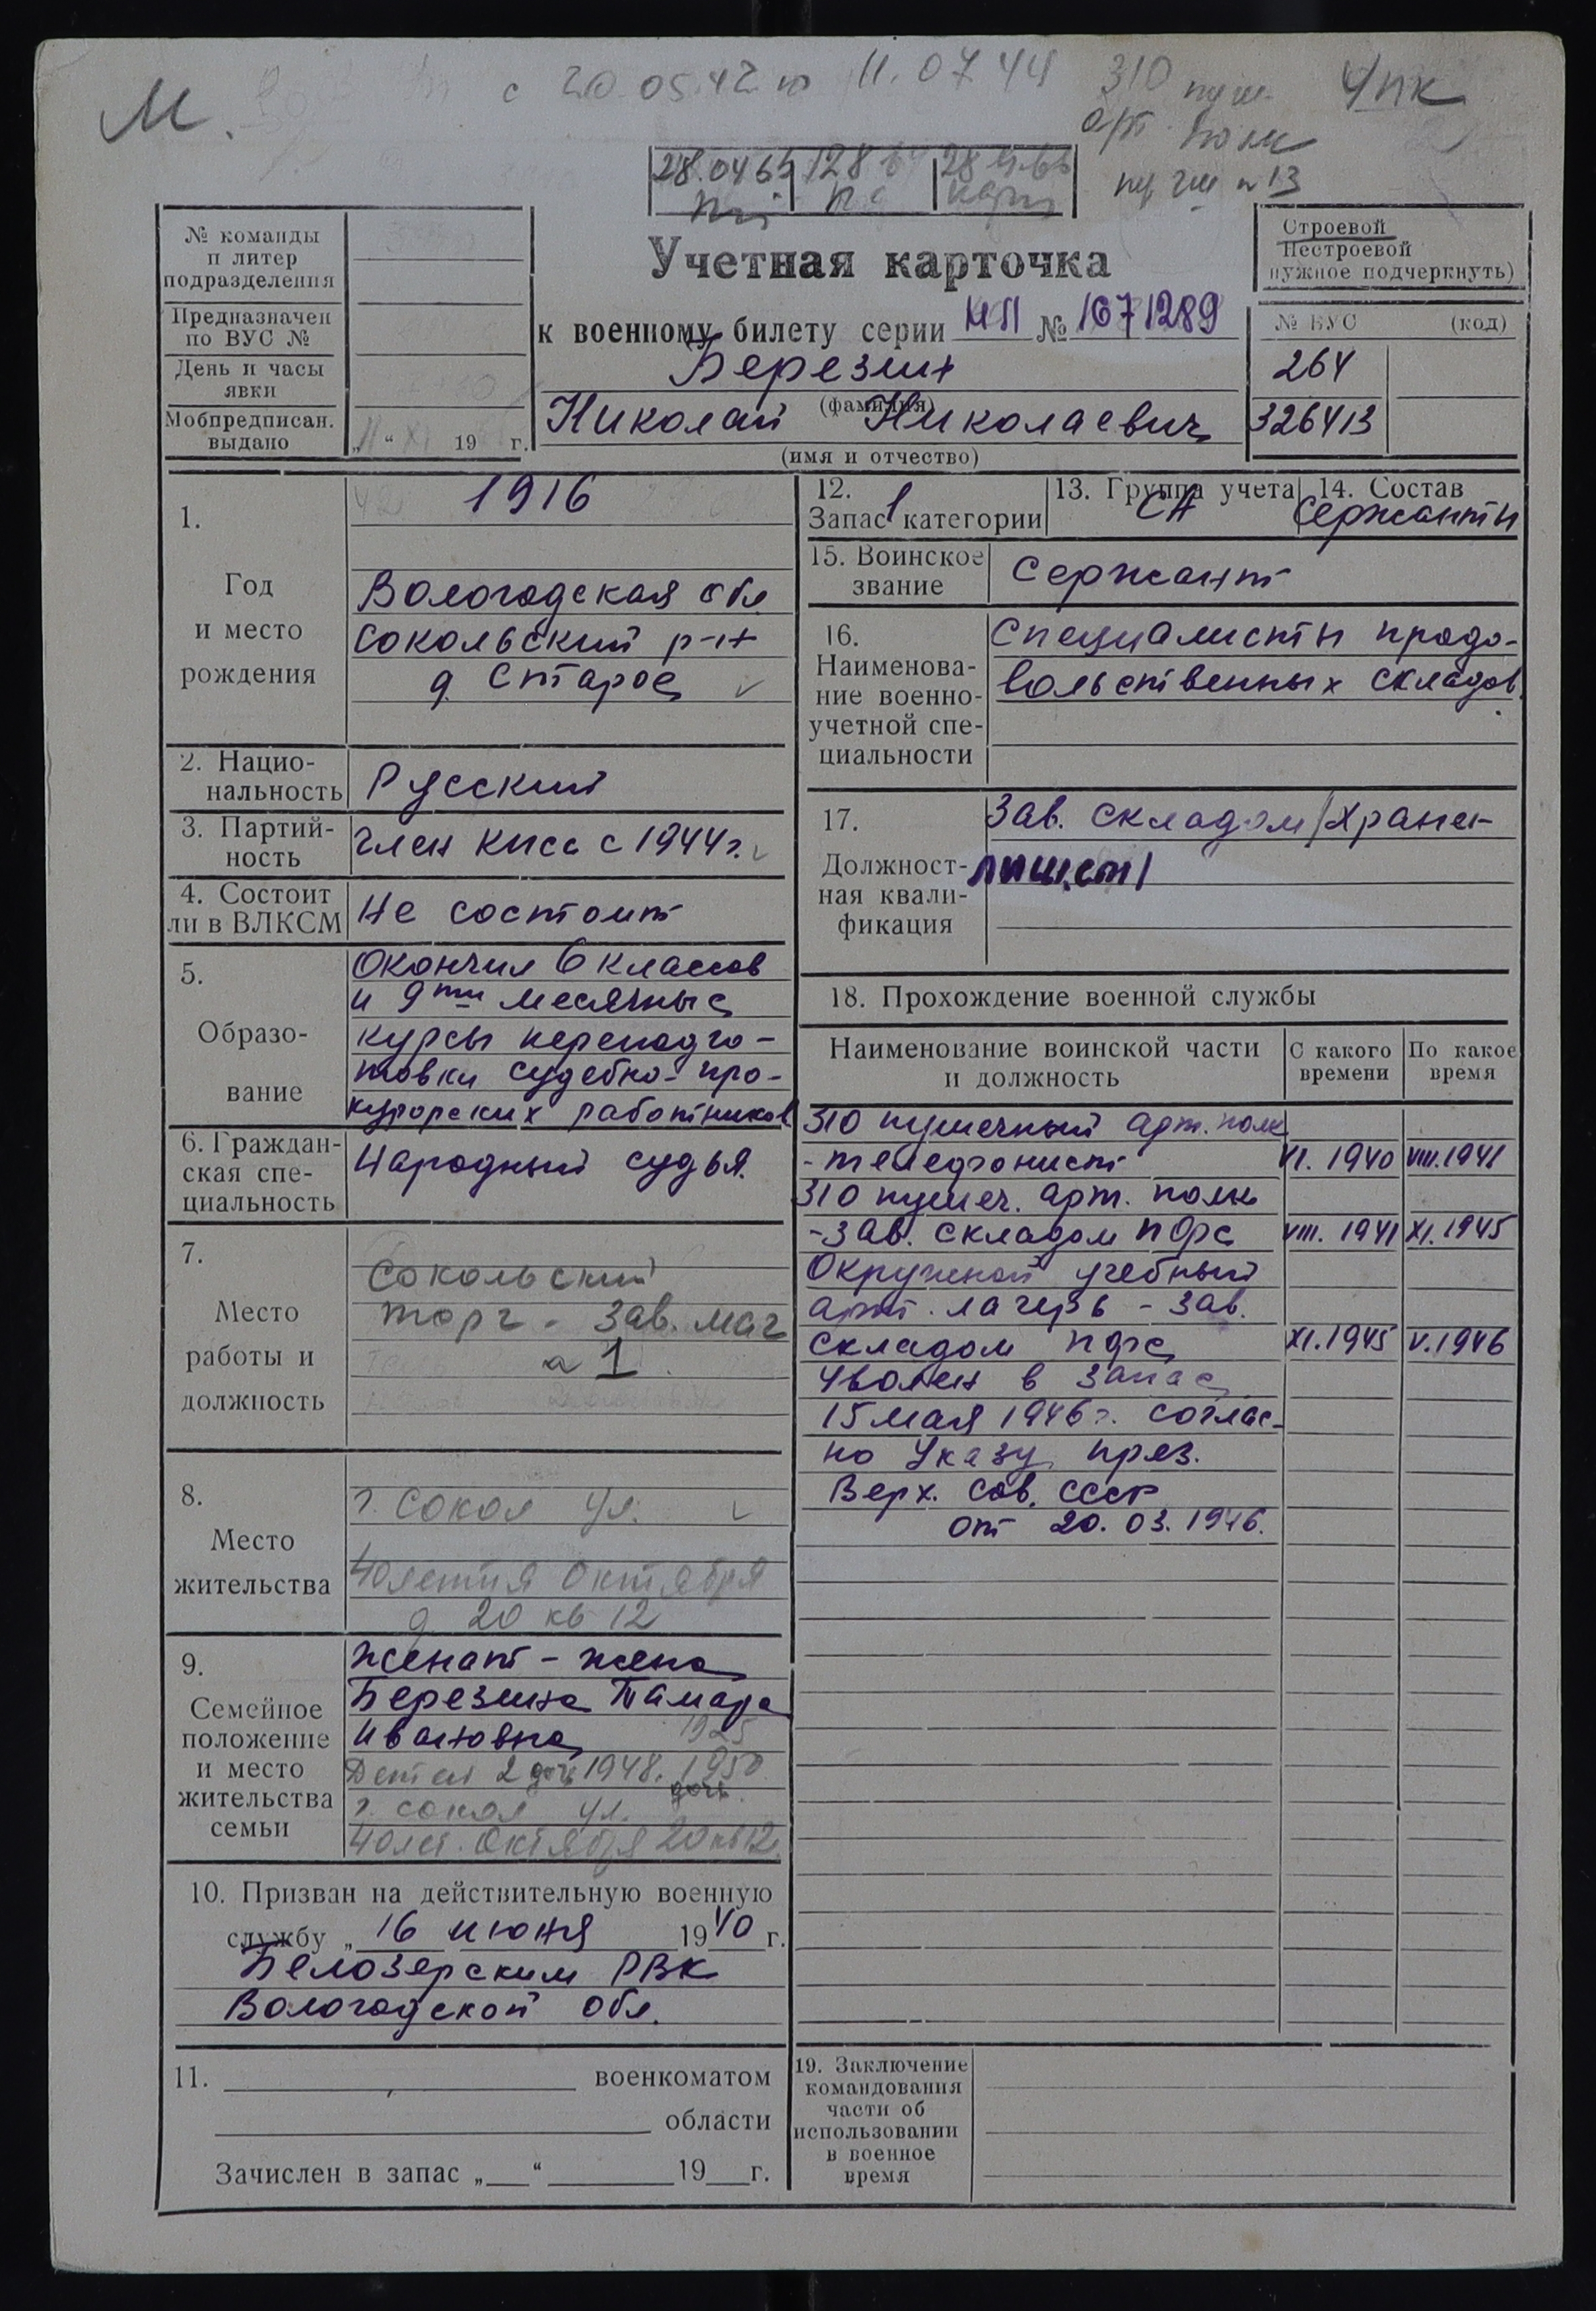 М.
с 20.05.42 по 11.07.44
310 пуш.
арт. полк
ЧПК
28.04.65
Учетная карточка
к военному билету серии НП № 1671289
Березин
(фамилия)
Николай Николаевич
(имя и отчество)
№ команды
и литер
подразделения
Предназначен
по ВУС №
День и часы
явки
Мобпредписан.
выдано
„11“ XI 19 г.
Строевой
Нестроевой
нужное подчеркнуть)
№ ВУС (код)
264
326413
1.
Год
и место
рождения
1916
Вологодская обл
Сокольский р-н
д. Старое
2. Нацио-
нальность
Русский
3. Партий-
ность
член КПСС с 1944 г.
4. Состоит
ли в ВЛКСМ
Не состоит
5.
Образо-
вание
Окончил 6 классов
и 9ти месячные
курсы переподго-
товки судебно-про-
курорских работников
6. Граждан-
ская спе-
циальность
Народный судья.
7.
Место
работы и
должность
Сокольский
торг - зав. маг
а 1
8.
Место
жительства
г. Сокол ул.
40летия Октября
д 20 кв 12
9.
Семейное
положение
и место
жительства
семьи
женат - жена
Березина Тамара
Ивановна 1925
Детей 2 дочь 1948. 1950
дочь.
г. Сокол ул.
40 лет. Октября 20 кв 12.
10. Призван на действительную военную
службу „16 июня 1940 г.
Белозерским РВК
Вологодской обл.
11. военкоматом
области
Зачислен в запас „ “ 19 г.
12.
Запас 1 категории
13. Группа учета
СА
14. Состав
Сержанты
15. Воинское
звание
Сержант
16.
Наименова-
ние военно-
учетной спе-
циальности
Специалисты продо-
вольственных складов.
17.
Должност-
ная квали-
фикация
Зав. складом /храни-
лищем/
18. Прохождение военной службы
Наименование воинской части
и должность
С какого
времени
По какое
время
310 пушечный арт. полк
- телефонист VI. 1940 VIII. 1941
310 пушеч. арт. полк
- зав. складом ПФС VIII. 1941 XI. 1945
Окружной учебный
арт. лагерь - зав.
складом ПФС XI. 1945 V. 1946
Уволен в запас
15 мая 1946 г. соглас-
но Указу през.
Верх. Сов. СССР
от 20. 03. 1946.
19. Заключение
командования
части об
использовании
в военное
время